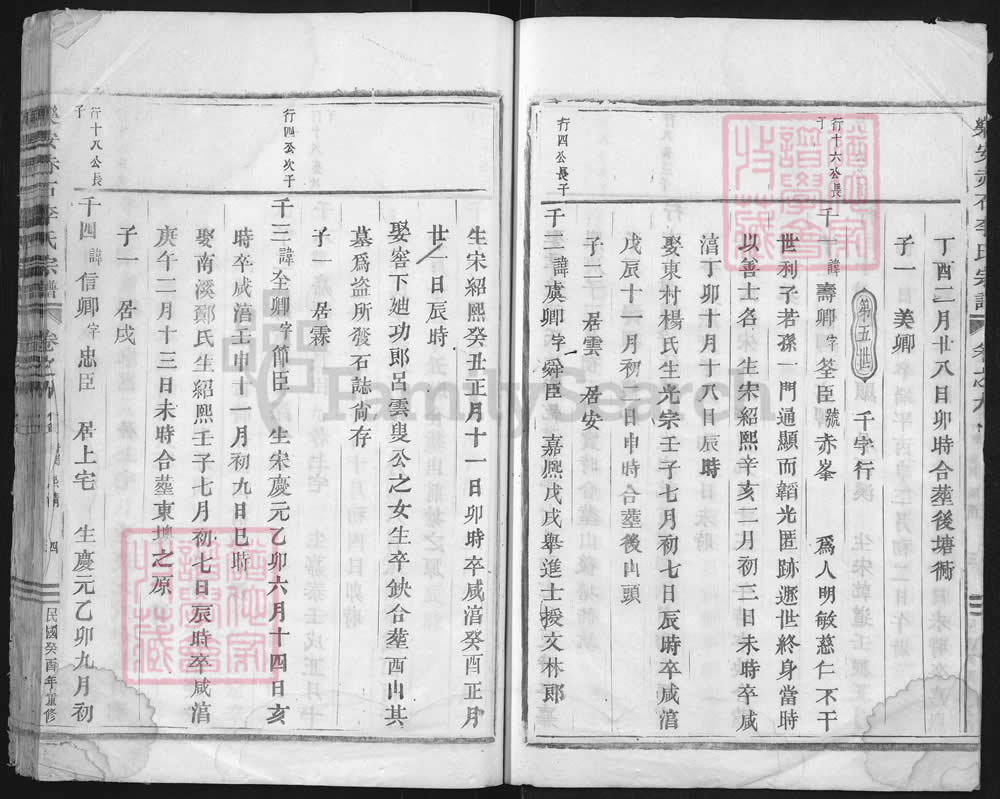 丁酉二月廿八日卯時合塟後塘衕
子一 美卿
第五世 千字行
行十六公長子
千一諱壽卿字筌臣號赤峯 爲人明敏慈仁不干
世利子若孫一門通顯而韜光匿跡遯世終身當時
以善士名 生宋紹熙辛亥二月初三日未時卒咸
淯丁卯十月十八日辰時
娶東村楊氏生光宗壬子七月初七日辰時卒咸淯
戊辰十一月初二日申時合塟後山頭
子二 居雲 居安
行四公長子
千二諱虞卿字舜臣 嘉熙戊戌舉進士授文林郎
生宋紹熙癸丑正月十一日卯時卒咸淯癸酉正月
廿一日辰時
娶窖下廸功郎呂雲叟公之女生卒缺合塟西山其
墓爲盜所發石誌尙存
子一 居霖
行四公次子
千三諱全卿字節臣 生宋慶元乙卯六月十四日亥
時卒咸淯壬申十一月初九日巳時
娶南溪鄭氏生紹熙壬子七月初七日辰時卒咸淯
庚午二月十三日未時合塟東坳之原
子一 居戌
行十八公長子
千四諱信卿字忠臣 居上宅 生慶元乙卯九月初
李氏宗譜 卷之九
四
民國癸酉年重修
FamilySearch